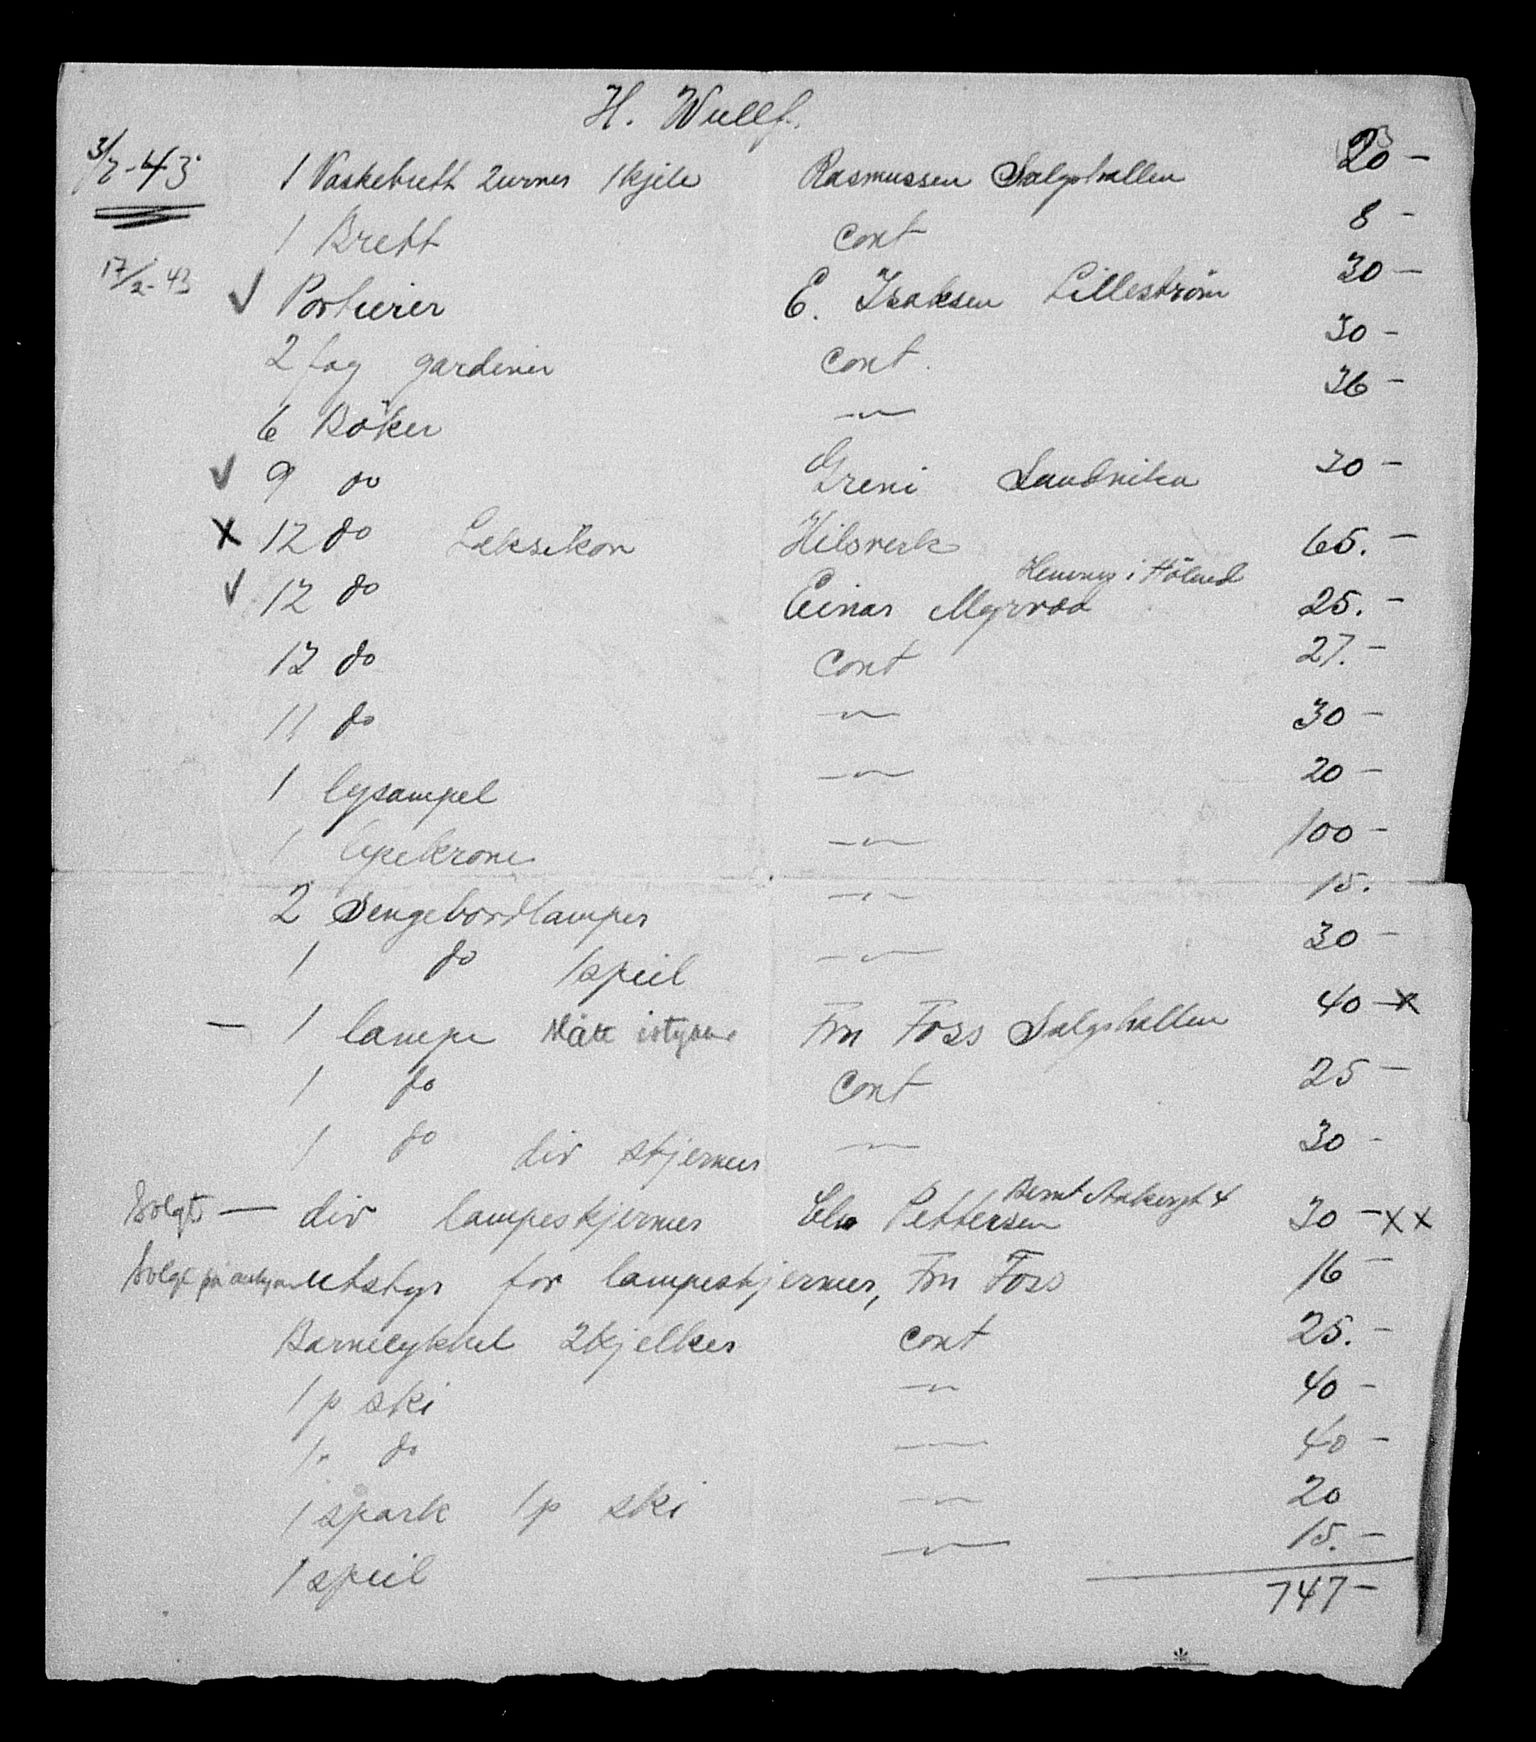 H. Wullf.
3/2-43 1 Vaskebrett 2urner 1kjele Rasmussen Salgshallen 20 -
1 Brett cont 8 -
17/2-43 √ Portierer E. Isaksen Lilleström 30 -
2 fag gardiner cont. 30 -
6 Böker -"- 36 -
√ 9 do Greni Sandvika 30 -
x 12 do Leksikon 65. -
Henning i Höland
√ 12 do Einar Myrvold 25. -
12 do cont 27. -
11 do -"- 30 -
1 lysampel -"- 20 -
1 lysekrone -"- 100 -
2 Sengebordlamper -"- 15.
1 do 1speil -"- 30 -
- 1 lampe Fru Foss Salgshallen 40 - x
1 do cont 25 -
1 do div skjermer -"- 30 -
Bernt Ankersgt 4
Solgt - div lampeskjermer Pettersen 30 - x x
Solgt på utstyr for lampeskjermer, Fru Foss 16 -
Barnecykkel 2kjelker cont 25. -
1 p ski -"- 40 -
1" do -"- 40 -
1 spark 1p ski -"- 20
1 speil -"- 15. -
747 -